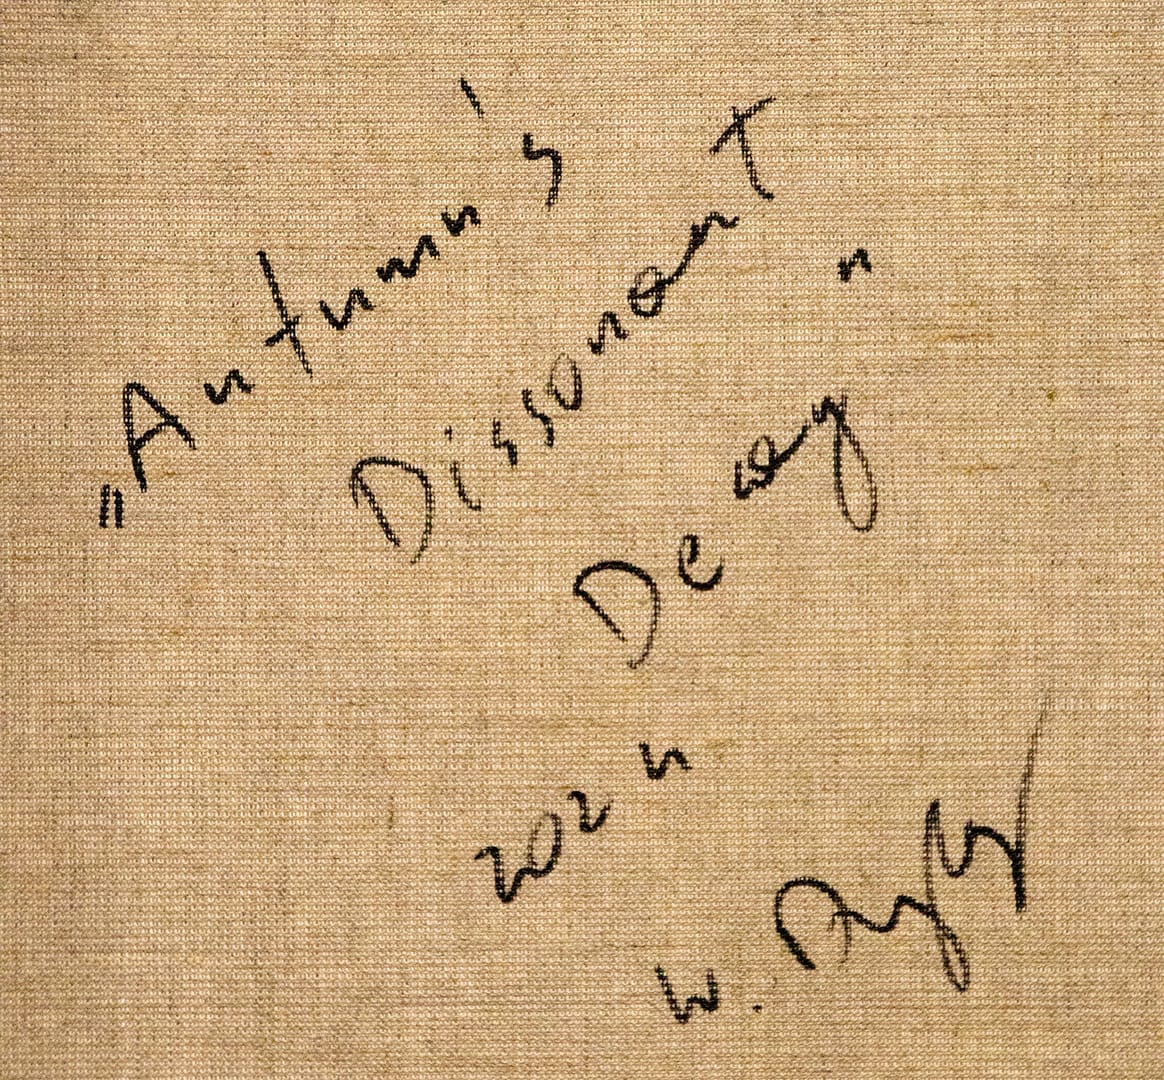 „Autumn's
Dissonant
Decay"
2024
W.